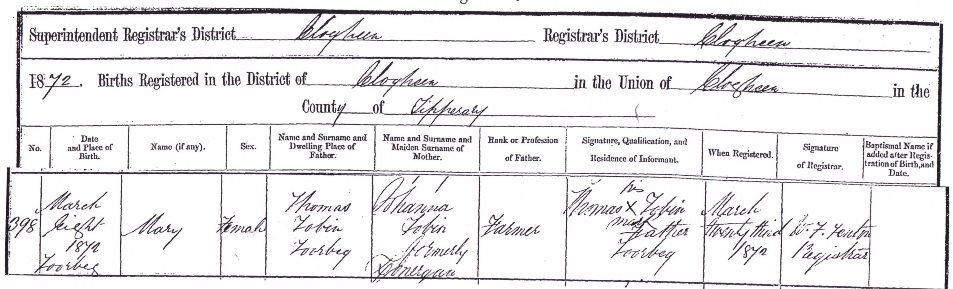 Superintendent Registrar's District Clogheen Registrar's District Clogheen
1872. Births Registered in the District of Clogheen in the Union of Clogheen in the
County of Tipperary
No. Date and Place of Birth. Name (if any). Sex. Name and Surname and Dwelling Place of Father. Name and Surname and Maiden Surname of Mother. Rank or Profession of Father. Signature, Qualification, and Residence of Informant. When Registered. Signature of Registrar. Baptismal Name if added after Registration of Birth, and Date.
398
March
Eight
1872
Toorbeg
Mary
Female
Thomas
Tobin
Toorbeg
Johanna
Tobin
formerly
Farmer
his
Thomas X Tobin
mark
Father
Toorbeg
March
twenty third
1872
W. F. Fenton
Registrar